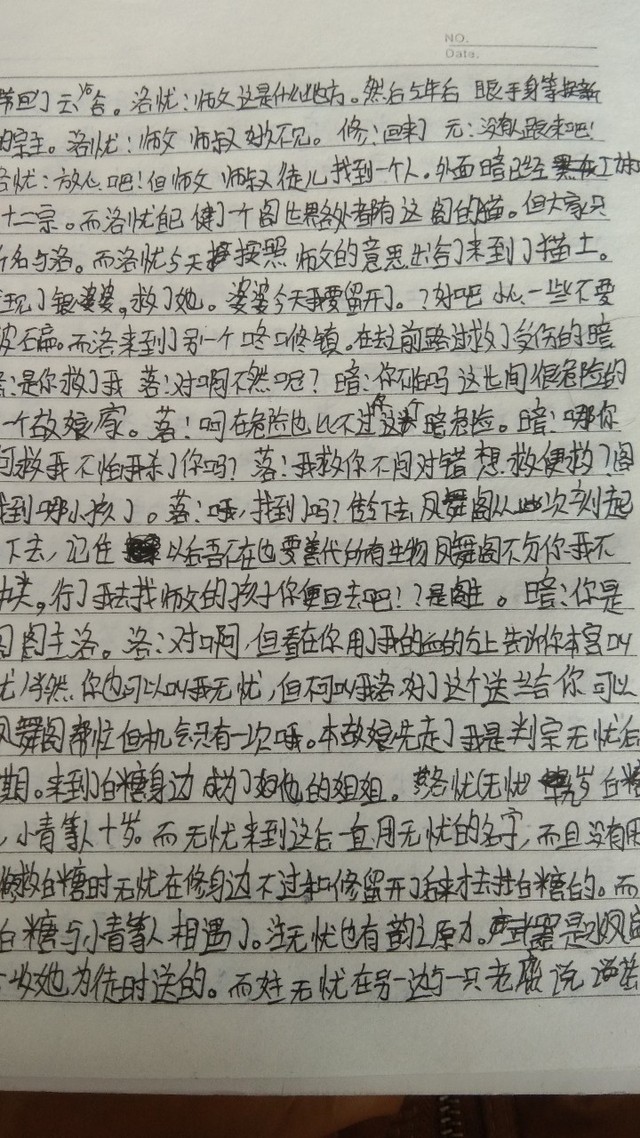 NO.
Date.
带回了云谷。洛忧:师父这是什么地方。然后5年后 眼于身等
的宗主。洛忧:师父 师叔好久不见。修:回来了 元:没有人跟来吧!
洛忧:放心吧!但师父 师叔 徒儿找到一个人。外面暗已经
十二宗。而洛忧自己健了个阁世界各处都有这阁的猫。但大家只
名与洛。而洛忧今天按照师父的意思出谷了来到了猫土。
现了银婆婆,救了她。婆婆今天我要留开了。?好吧 小心一些不要
而洛来到了另一个咚咚镇。在赶前路过救了受伤的暗
是你救了我 落:对啊不然呢?暗:你不怕吗这世间很危险的
一个故娘家。落:呵在危险也比不过这个暗危险。暗:哪你
何救我不怕我杀了你吗?落:我救你不问对错想救便救?阁
找到哪小孩了。落:哦,找到了吗?传下去,风舞阁从此次刻起
下去,记住 以后吾不在也要善代所有生物风舞阁不分你我不
类,行了我去找师父的孩子你便回去吧!?是阁主。暗:你是
阁阁主洛。洛:对啊,但看在你用了我的血的分上告诉你本宫叫
忧!当然你也可以叫我无忧,但不可叫我洛。对了这个送兰合你可以
风舞阁帮忙但机会只有一次哦。本故娘先走了我是判宗无忧后
期。来到白糖身边成为了他的姐姐。洛忧(无忧 岁 白糖
小青等人十岁。而无忧来到这后一直用无忧的名字,而且没有用
救白糖时无忧在修身边不过和修留开了后来才去找白糖的。而
白糖与小青等人相遇了。注无忧也有韵之原力。武器是
收她为徒时送的。而姓无忧在另一边与一只老 说